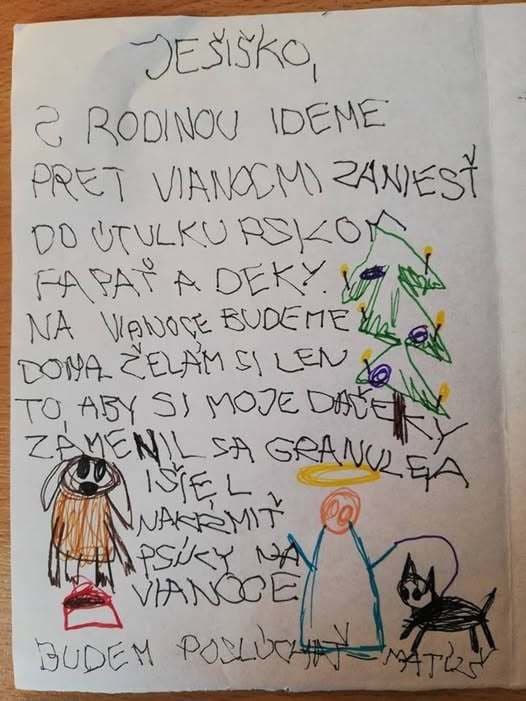 JEŠIŠKO,
S RODINOU IDEME
PRET VIANOCMI ZANIESŤ
DO ÚTULKU PSIKOM
FAPAŤ A DEKY.
NA VIANOCE BUDEME
DOMA. ŽELÁM SI LEN
TO, ABY SI MOJE DAČEKY
ZAMENIL SA GRANULE A
IŠIEL
NAKŔMIŤ
PSÍKY NA
VIANOCE
BUDEM POSLÚCHAŤ MATÚŠ